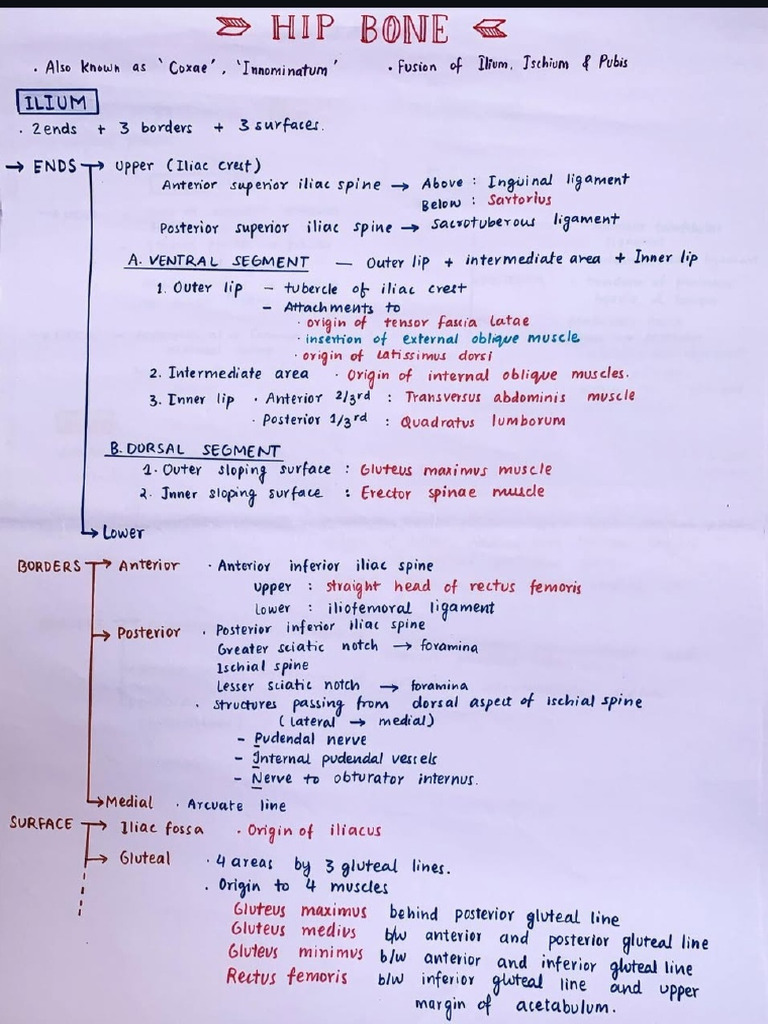 HIP BONE
• Also known as 'Coxae', 'Innominatum' • Fusion of Ilium, Ischium & Pubis
ILIUM
• 2ends + 3 borders + 3 surfaces.
→ ENDS → Upper (Iliac crest)
Anterior superior iliac spine → Above : Inguinal ligament
Below : Sartorius
Posterior superior iliac spine → sacrotuberous ligament
A. VENTRAL SEGMENT — Outer lip + intermediate area + Inner lip
1. Outer lip – tubercle of iliac crest
– Attachments to
• origin of tensor fascia latae
• insertion of external oblique muscle
• origin of latissimus dorsi
2. Intermediate area • Origin of internal oblique muscles.
3. Inner lip • Anterior 2/3rd : Transversus abdominis muscle
• Posterior 1/3rd : Quadratus lumborum
B. DORSAL SEGMENT
1. Outer sloping surface : Gluteus maximus muscle
2. Inner sloping surface : Erector spinae muscle
→ Lower
BORDERS → Anterior • Anterior inferior iliac spine
upper : straight head of rectus femoris
Lower : iliofemoral ligament
→ Posterior • Posterior inferior iliac spine
Greater sciatic notch → foramina
Ischial spine
Lesser sciatic notch → foramina
• Structures passing from dorsal aspect of ischial spine
(lateral → medial)
– Pudendal nerve
– Internal pudendal vessels
– Nerve to obturator internus.
→ Medial • Arcuate line
SURFACE → Iliac fossa • Origin of iliacus
→ Gluteal • 4 areas by 3 gluteal lines.
• Origin to 4 muscles
Gluteus maximus behind posterior gluteal line
Gluteus medius b/w anterior and posterior gluteal line
Gluteus minimus b/w anterior and inferior gluteal line
Rectus femoris b/w inferior gluteal line and upper
margin of acetabulum.